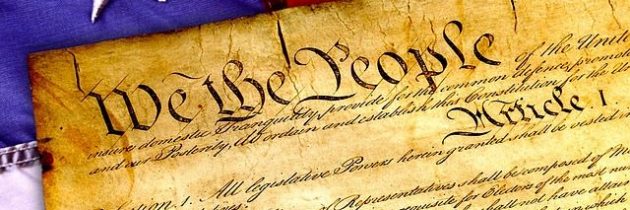 We the People of the United
insure domestic Tranquility, provide for the common defence, promote
and our Posterity, do ordain and establish this Constitution for the Un
Article I
ection 1. All legislative Powers herein granted shall be vested in
of Representatives shall be composed of M
requisite for Electors of the most num
shall not have attain
n which